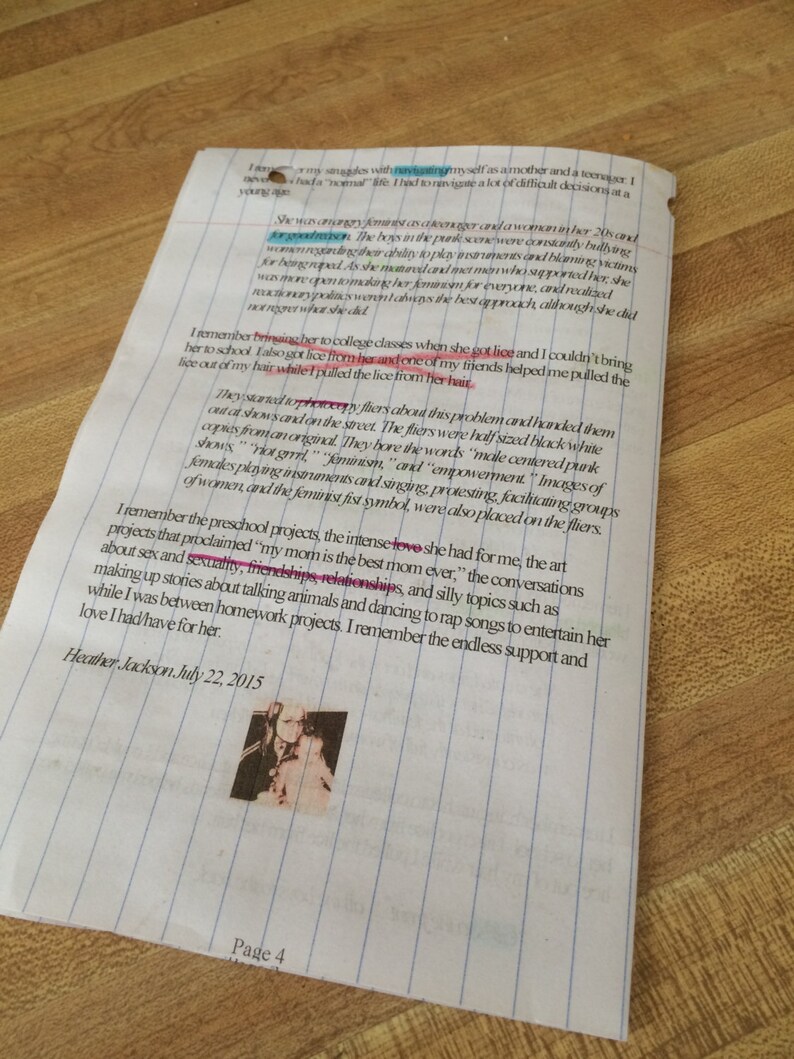 I my struggles with navigating myself as a mother and a teenager. I
had a “normal” life. I had to navigate a lot of difficult decisions at a
young age.
She was an angry feminist as a teenager and a woman in her 20s and
for good reason. The boys in the punk scene were constantly bullying
women regarding their ability to play instruments and blaming victims
for being raped. As she matured and met men who supported her, she
was more open to making her feminism for everyone, and realized
reactionary politics weren't always the best approach, although she did
not regret what she did.
I remember bringing her to college classes when she got lice and I couldn't bring
her to school. I also got lice from her and one of my friends helped me pulled the
lice out of my hair while I pulled the lice from her hair.
They started to photocopy fliers about this problem and handed them
out at shows and on the street. The fliers were half sized black/white
copies from an original. They bore the words “male centered punk
shows,” “riot grrrl,” “feminism,” and “empowerment.” Images of
females playing instruments and singing, protesting, facilitating groups
of women, and the feminist fist symbol, were also placed on the fliers.
I remember the preschool projects, the intense love she had for me, the art
projects that proclaimed “my mom is the best mom ever,” the conversations
about sex and sexuality, friendships, relationships, and silly topics such as
making up stories about talking animals and dancing to rap songs to entertain her
while I was between homework projects. I remember the endless support and
love I had/have for her.
Heather Jackson July 22, 2015
Page 4